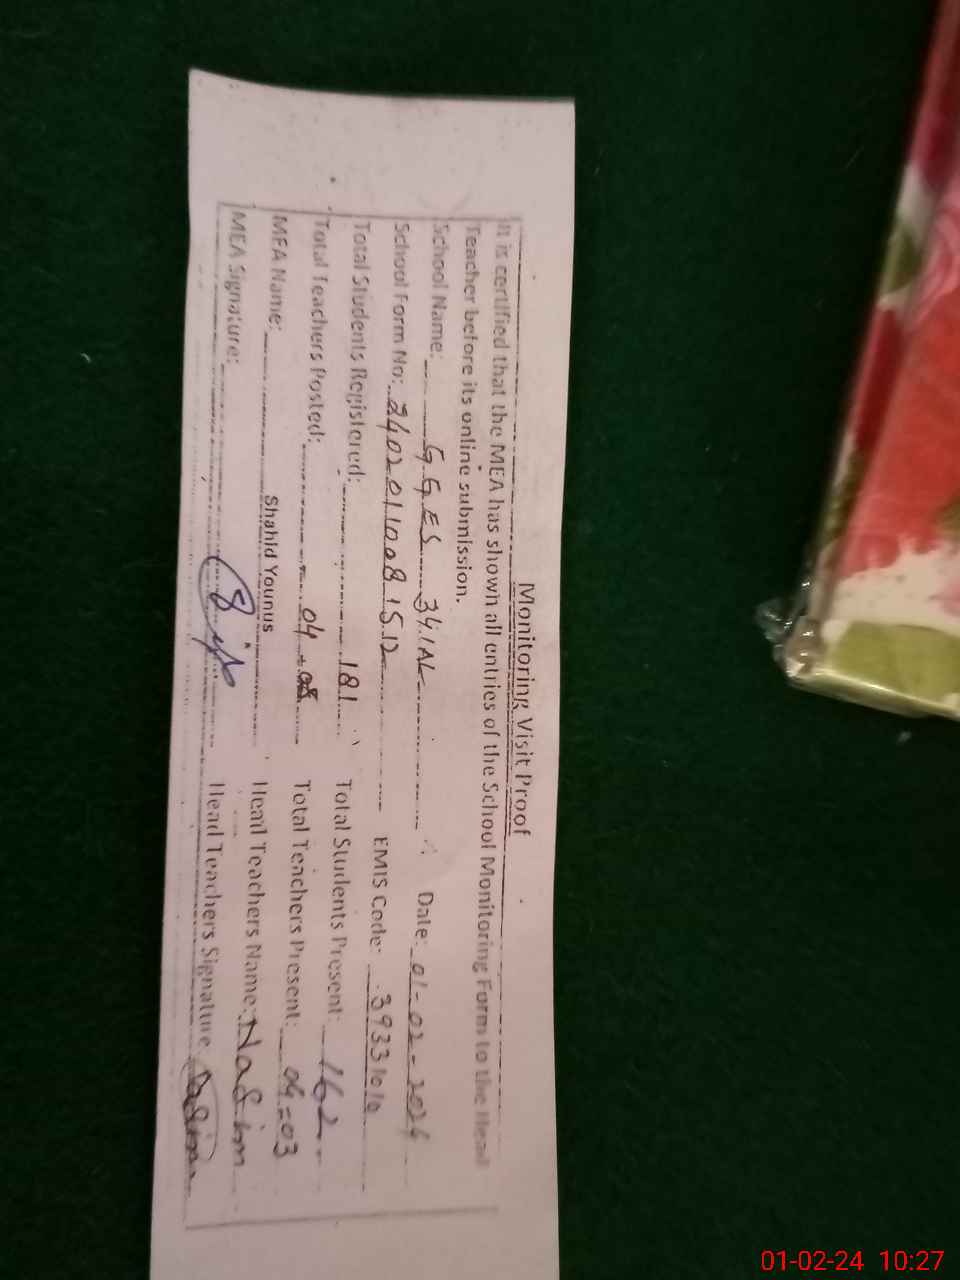 Monitoring Visit Proof
It is certified that the MEA has shown all entries of the School Monitoring Form to the Head
Teacher before its online submission.
School Name: G.G.E.S 34.1AL Date: 01-02-2024
School Form No: 2402011008 15.12 EMIS Code: 39331010
Total Students Registered: 181 Total Students Present: 162
Total Teachers Posted: 04 Total Teachers Present: 04=03
MEA Name: Shahid Younus Head Teachers Name: Nasim
MEA Signature: Head Teachers Signature Nasim
01-02-24 10:27